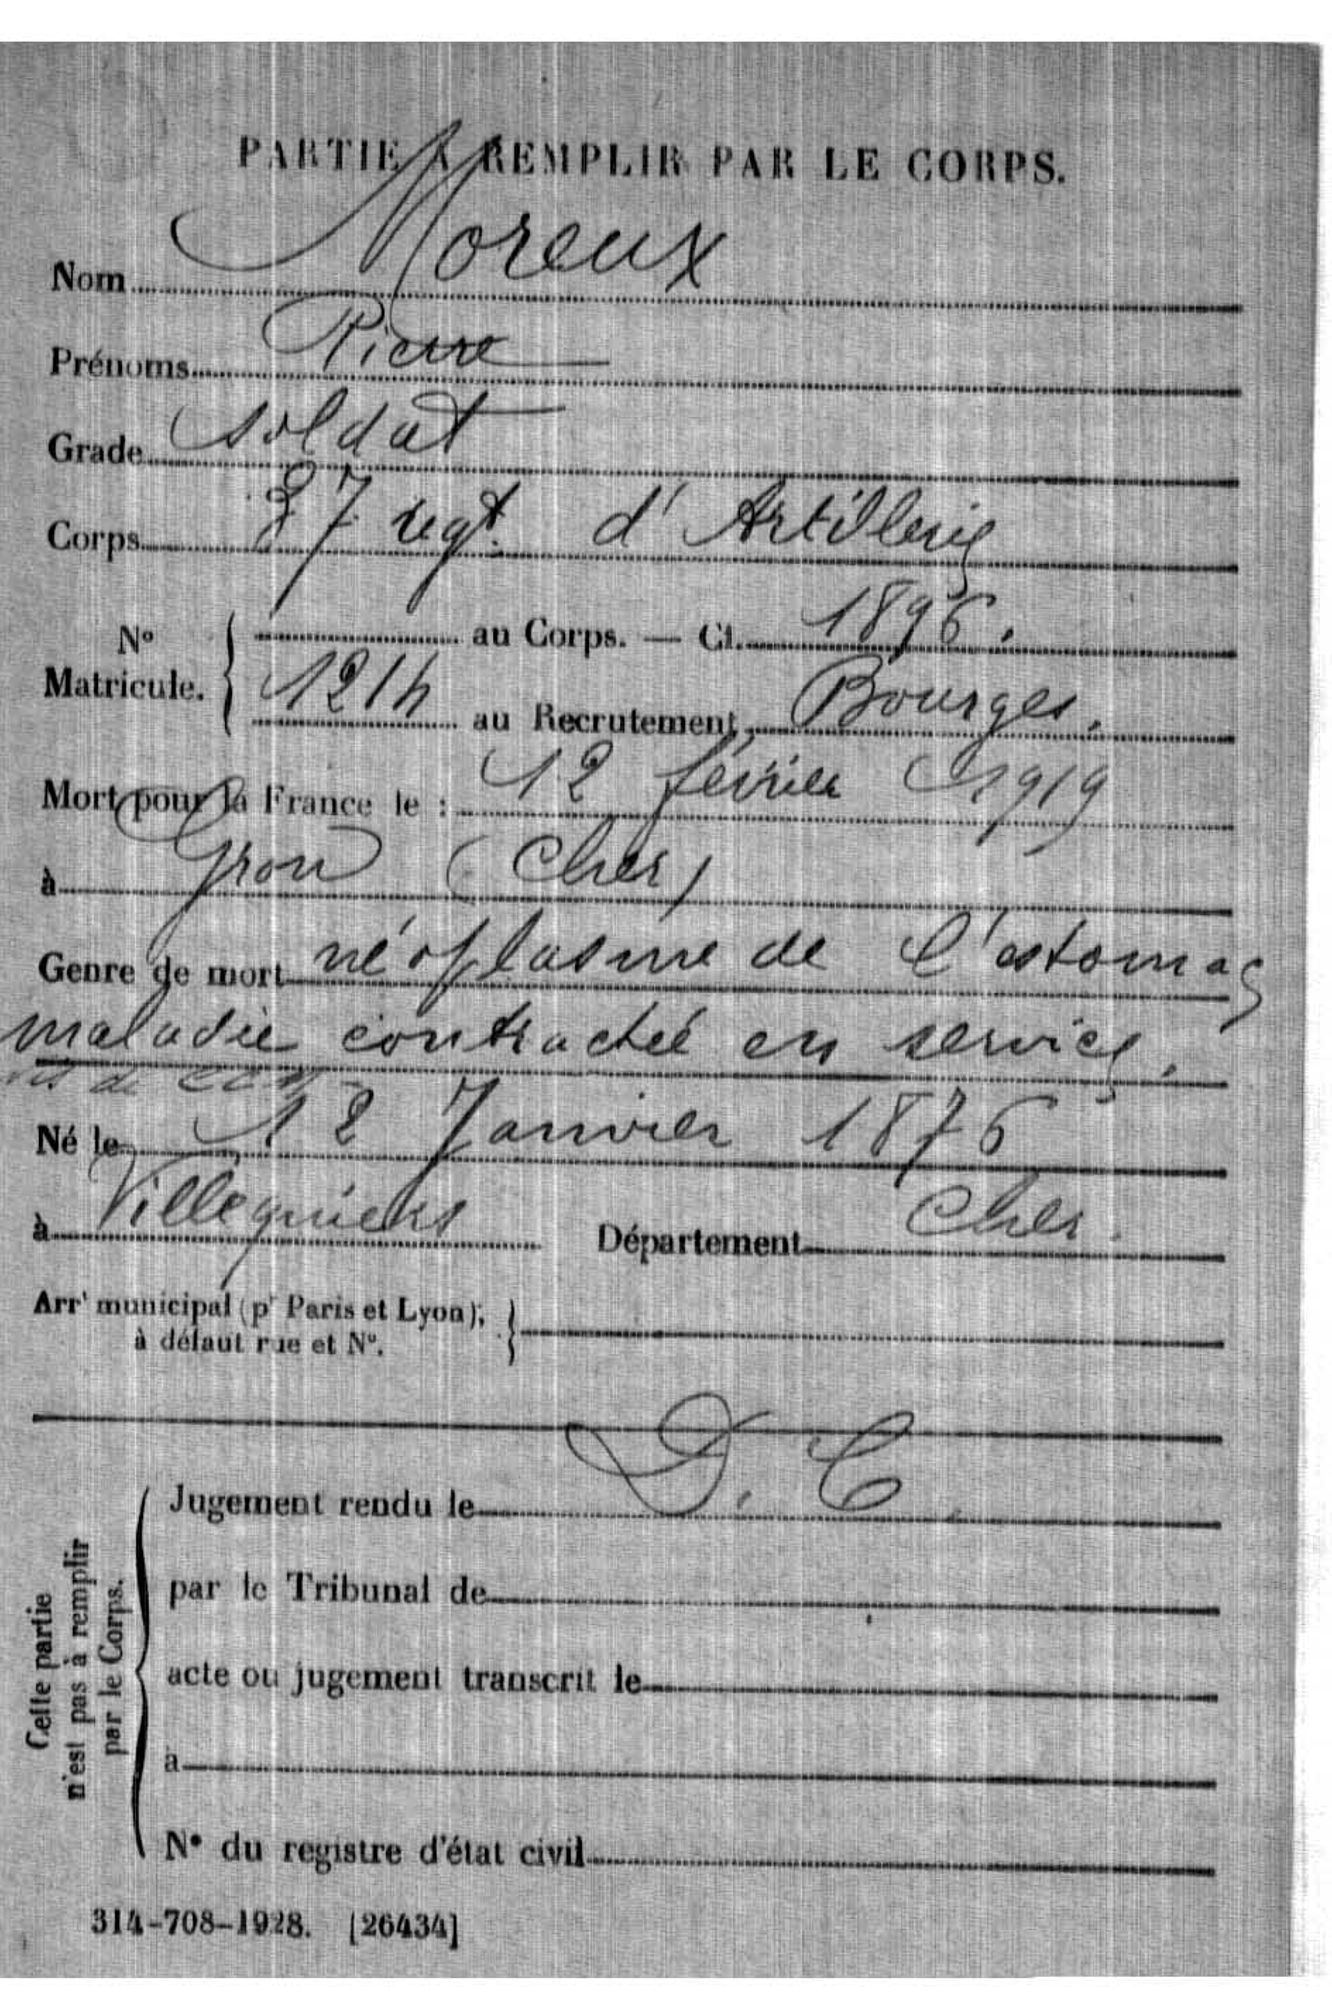 PARTIE A REMPLIR PAR LE CORPS.
Nom Moreux
Prénoms Pierre
Grade soldat
Corps 37 regt. d'Artillerie
N° Matricule. { au Corps. — Cl. 1896.
1214 au Recrutement Bourges.
Mort pour la France le : 12 février 1919
à Gron (Cher)
Genre de mort néoplasme de l'estomac
maladie contractée en service.
Né le 12 Janvier 1876
à Villequiers Département Cher.
Arrt municipal (pr Paris et Lyon),
à défaut rue et N°. }
D. C.
Cette partie
n'est pas à remplir
par le Corps.
Jugement rendu le
par le Tribunal de
acte ou jugement transcrit le
à
N° du registre d'état civil
314-708-1928. [26434]